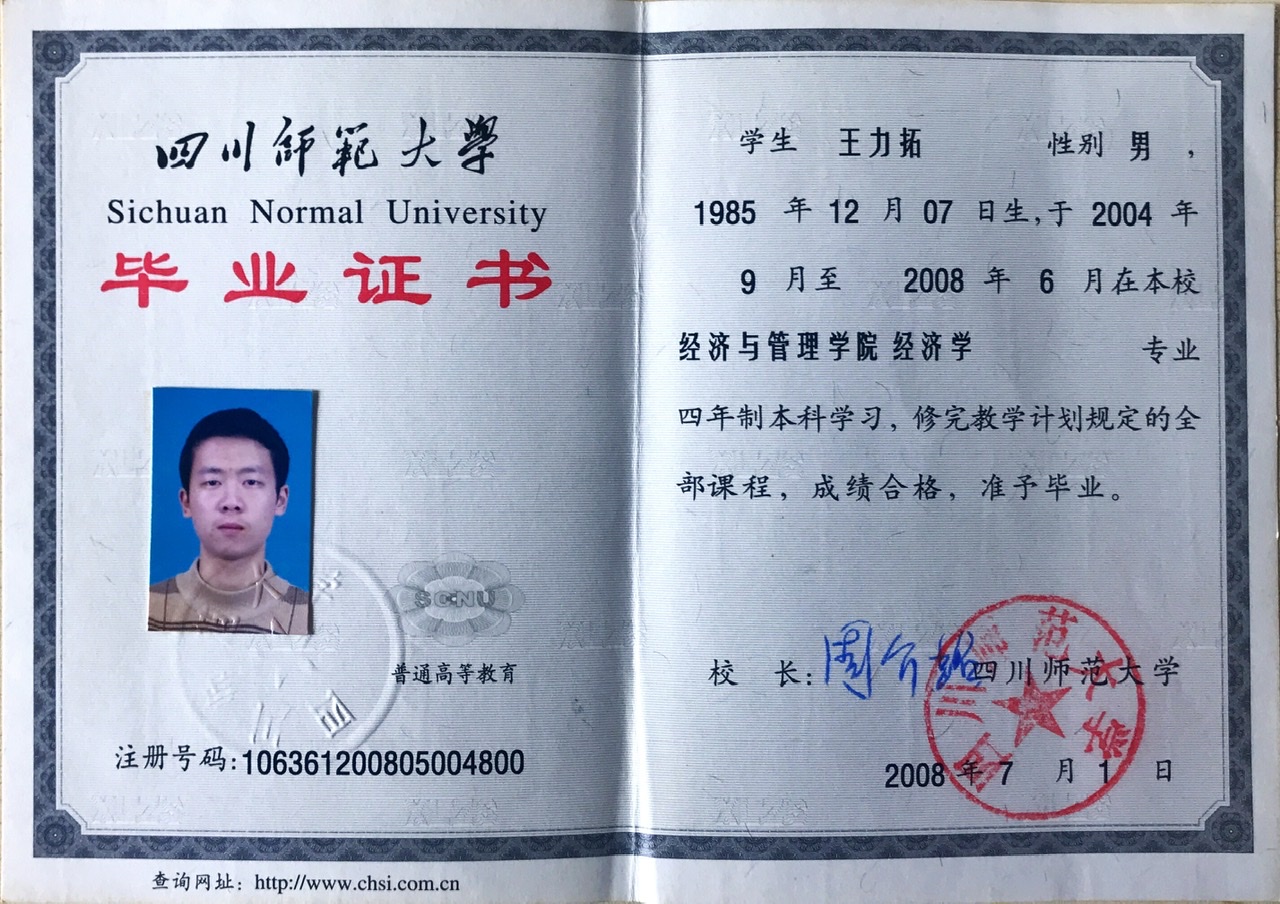 四川師範大學
Sichuan Normal University
毕业证书
SCNU
普通高等教育
注册号码:106361200805004800
查询网址：http://www.chsi.com.cn
学生 王力拓 性别 男，
1985 年 12 月 07 日生,于 2004 年
9 月至 2008 年 6 月在本校
经济与管理学院 经济学 专业
四年制本科学习，修完教学计划规定的全
部课程，成绩合格，准予毕业。
校 长: 周介铭 四川师范大学
四川师范大学
2008 年 7 月 1 日